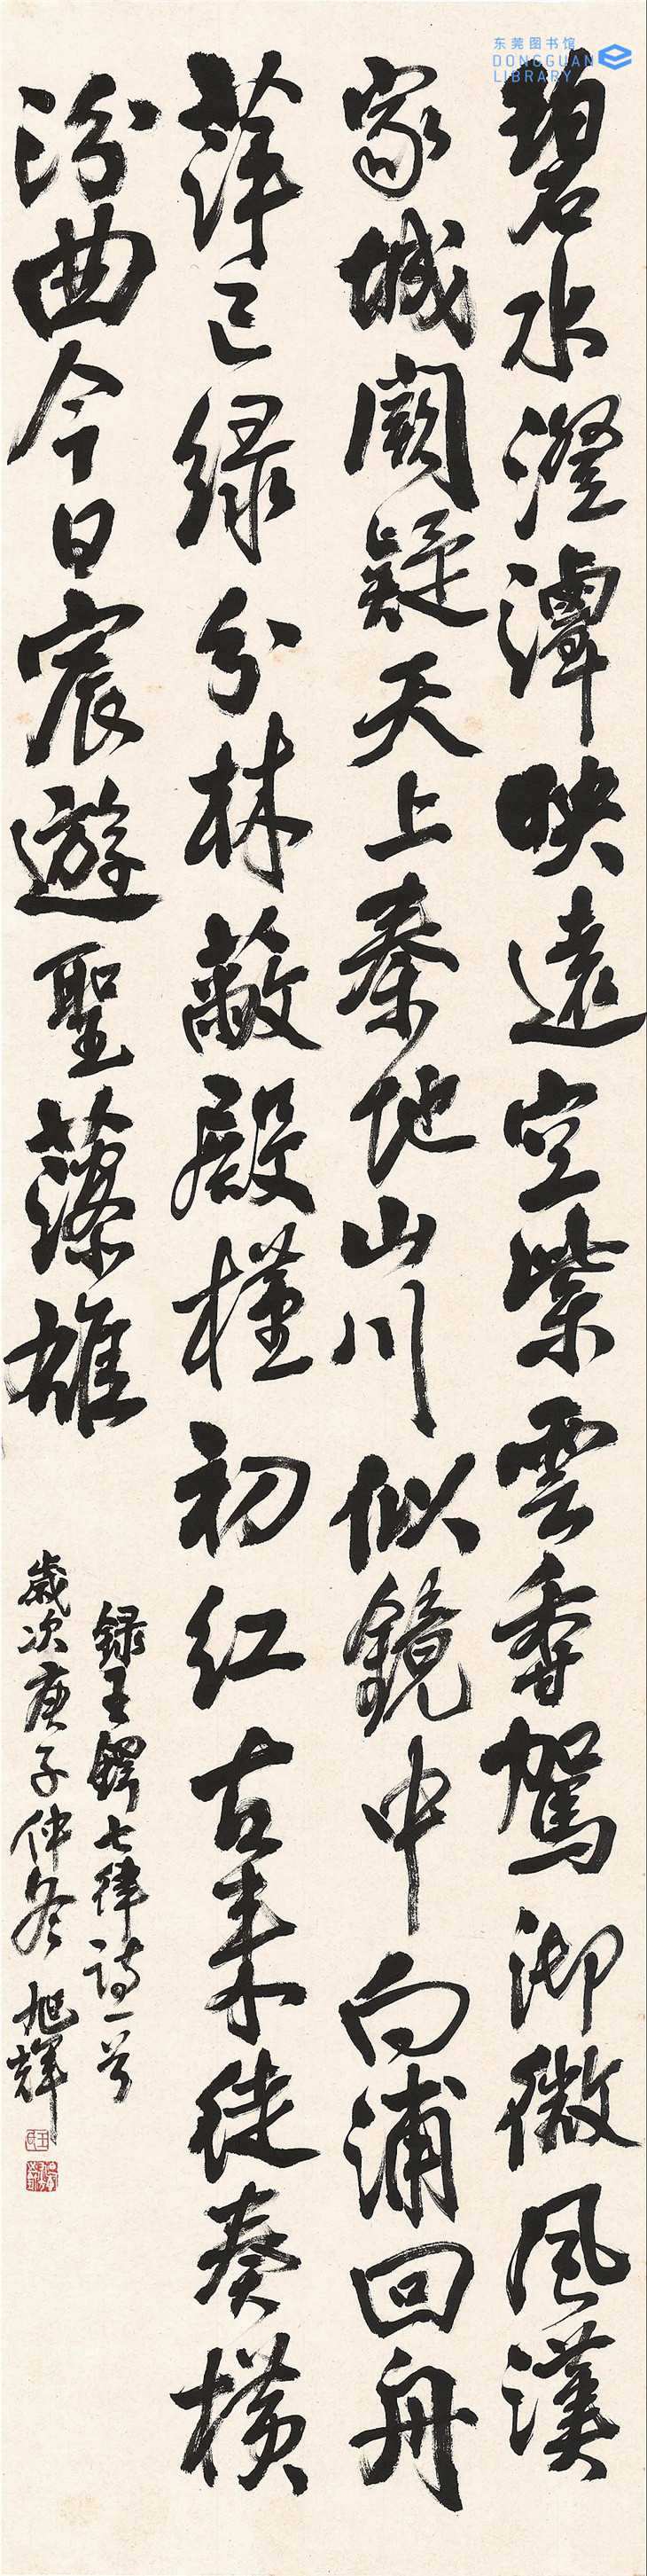 东莞图书馆
DONGGUAN
LIBRARY
碧水澄潭映远空紫云香驾御微风汉
家城阙疑天上秦地山川似镜中向浦回舟
萍已绿分林蔽殿槿初红古来徒奏横
汾曲今日宸遊聖藻雄
録王鐸七律詩一首
歲次庚子仲冬旭輝